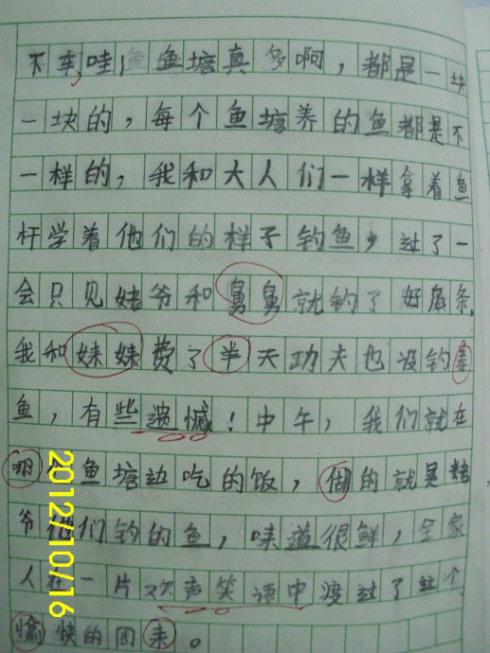 下车,哇!鱼塘真多啊,都是一块
一块的,每个鱼塘养的鱼都是不
一样的,我和大人们一样拿着鱼
杆学着他们的样子钓鱼,过了一
会只见姥爷和舅舅就钓了好底条,
我和妹妹费了半天功夫也没钓着
鱼,有些遗憾!中午,我们就在
鱼塘边吃的饭,做的就是姥
爷他们钓的鱼,味道很鲜,全家
人在一片欢声笑语中渡过了这个
愉快的周末。
2012/10/16